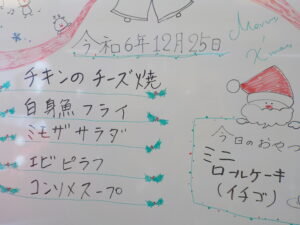 令和6年12月25日
Merry
X'mas
チキンのチーズ焼
白身魚フライ
ミモザサラダ
エビピラフ
コンソメスープ
今日のおやつ
ミニ
ロールケーキ
(イチゴ)